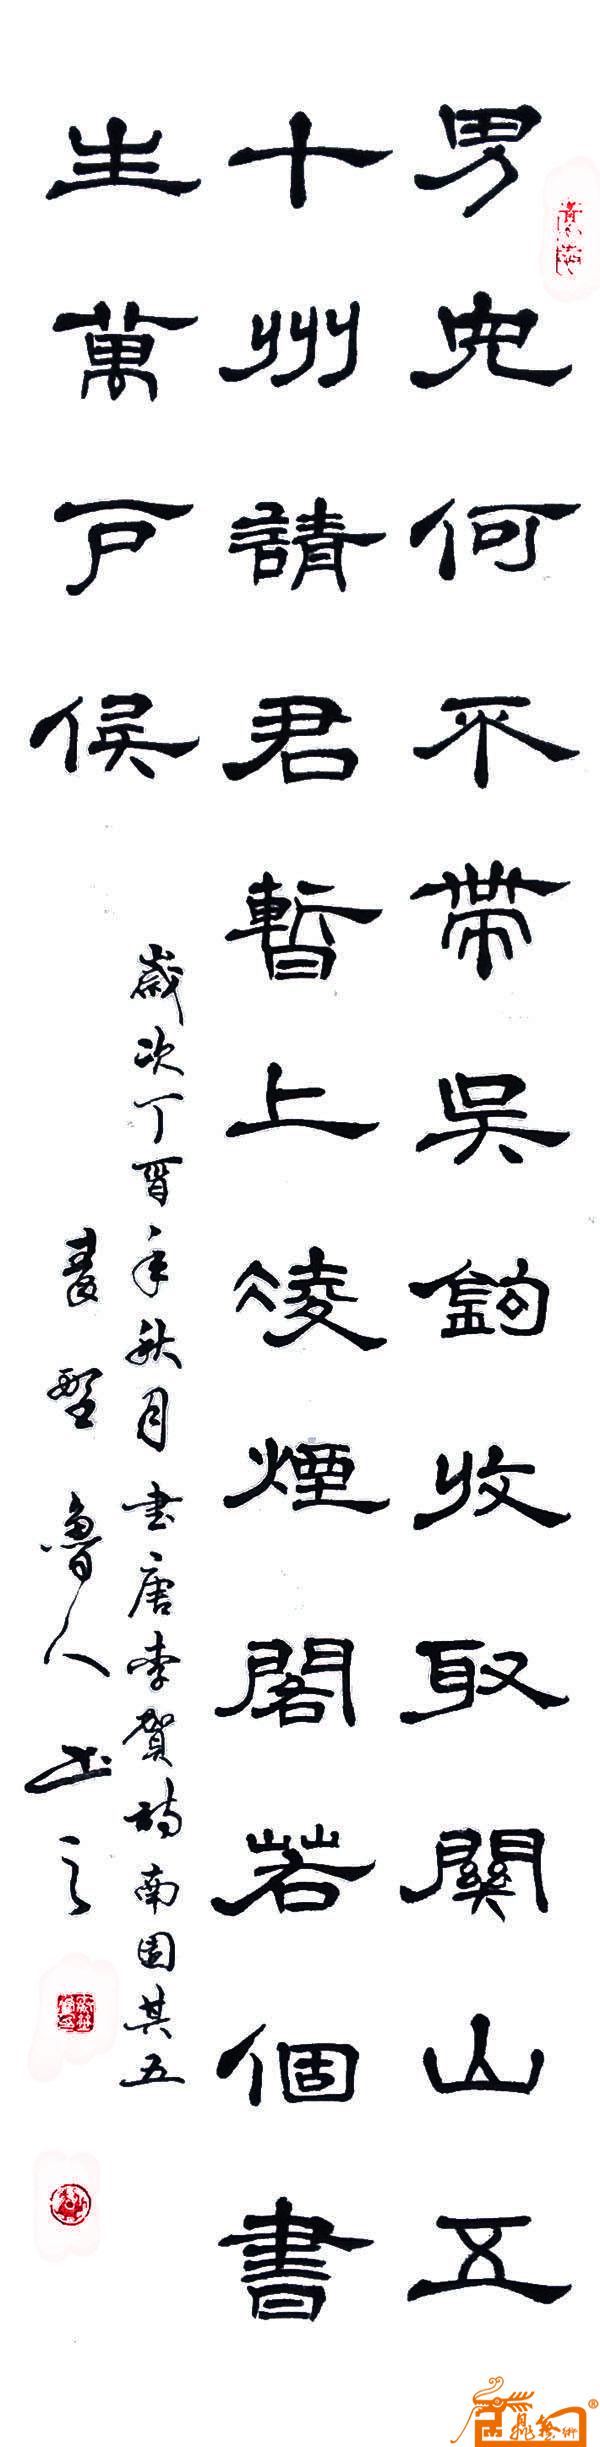 男兒何不帶吳鉤收取關山五
十州請君暫上凌煙閣若個書
生萬戶侯
歲次丁酉年秋月书唐李賀詩南园其五
魯人书之